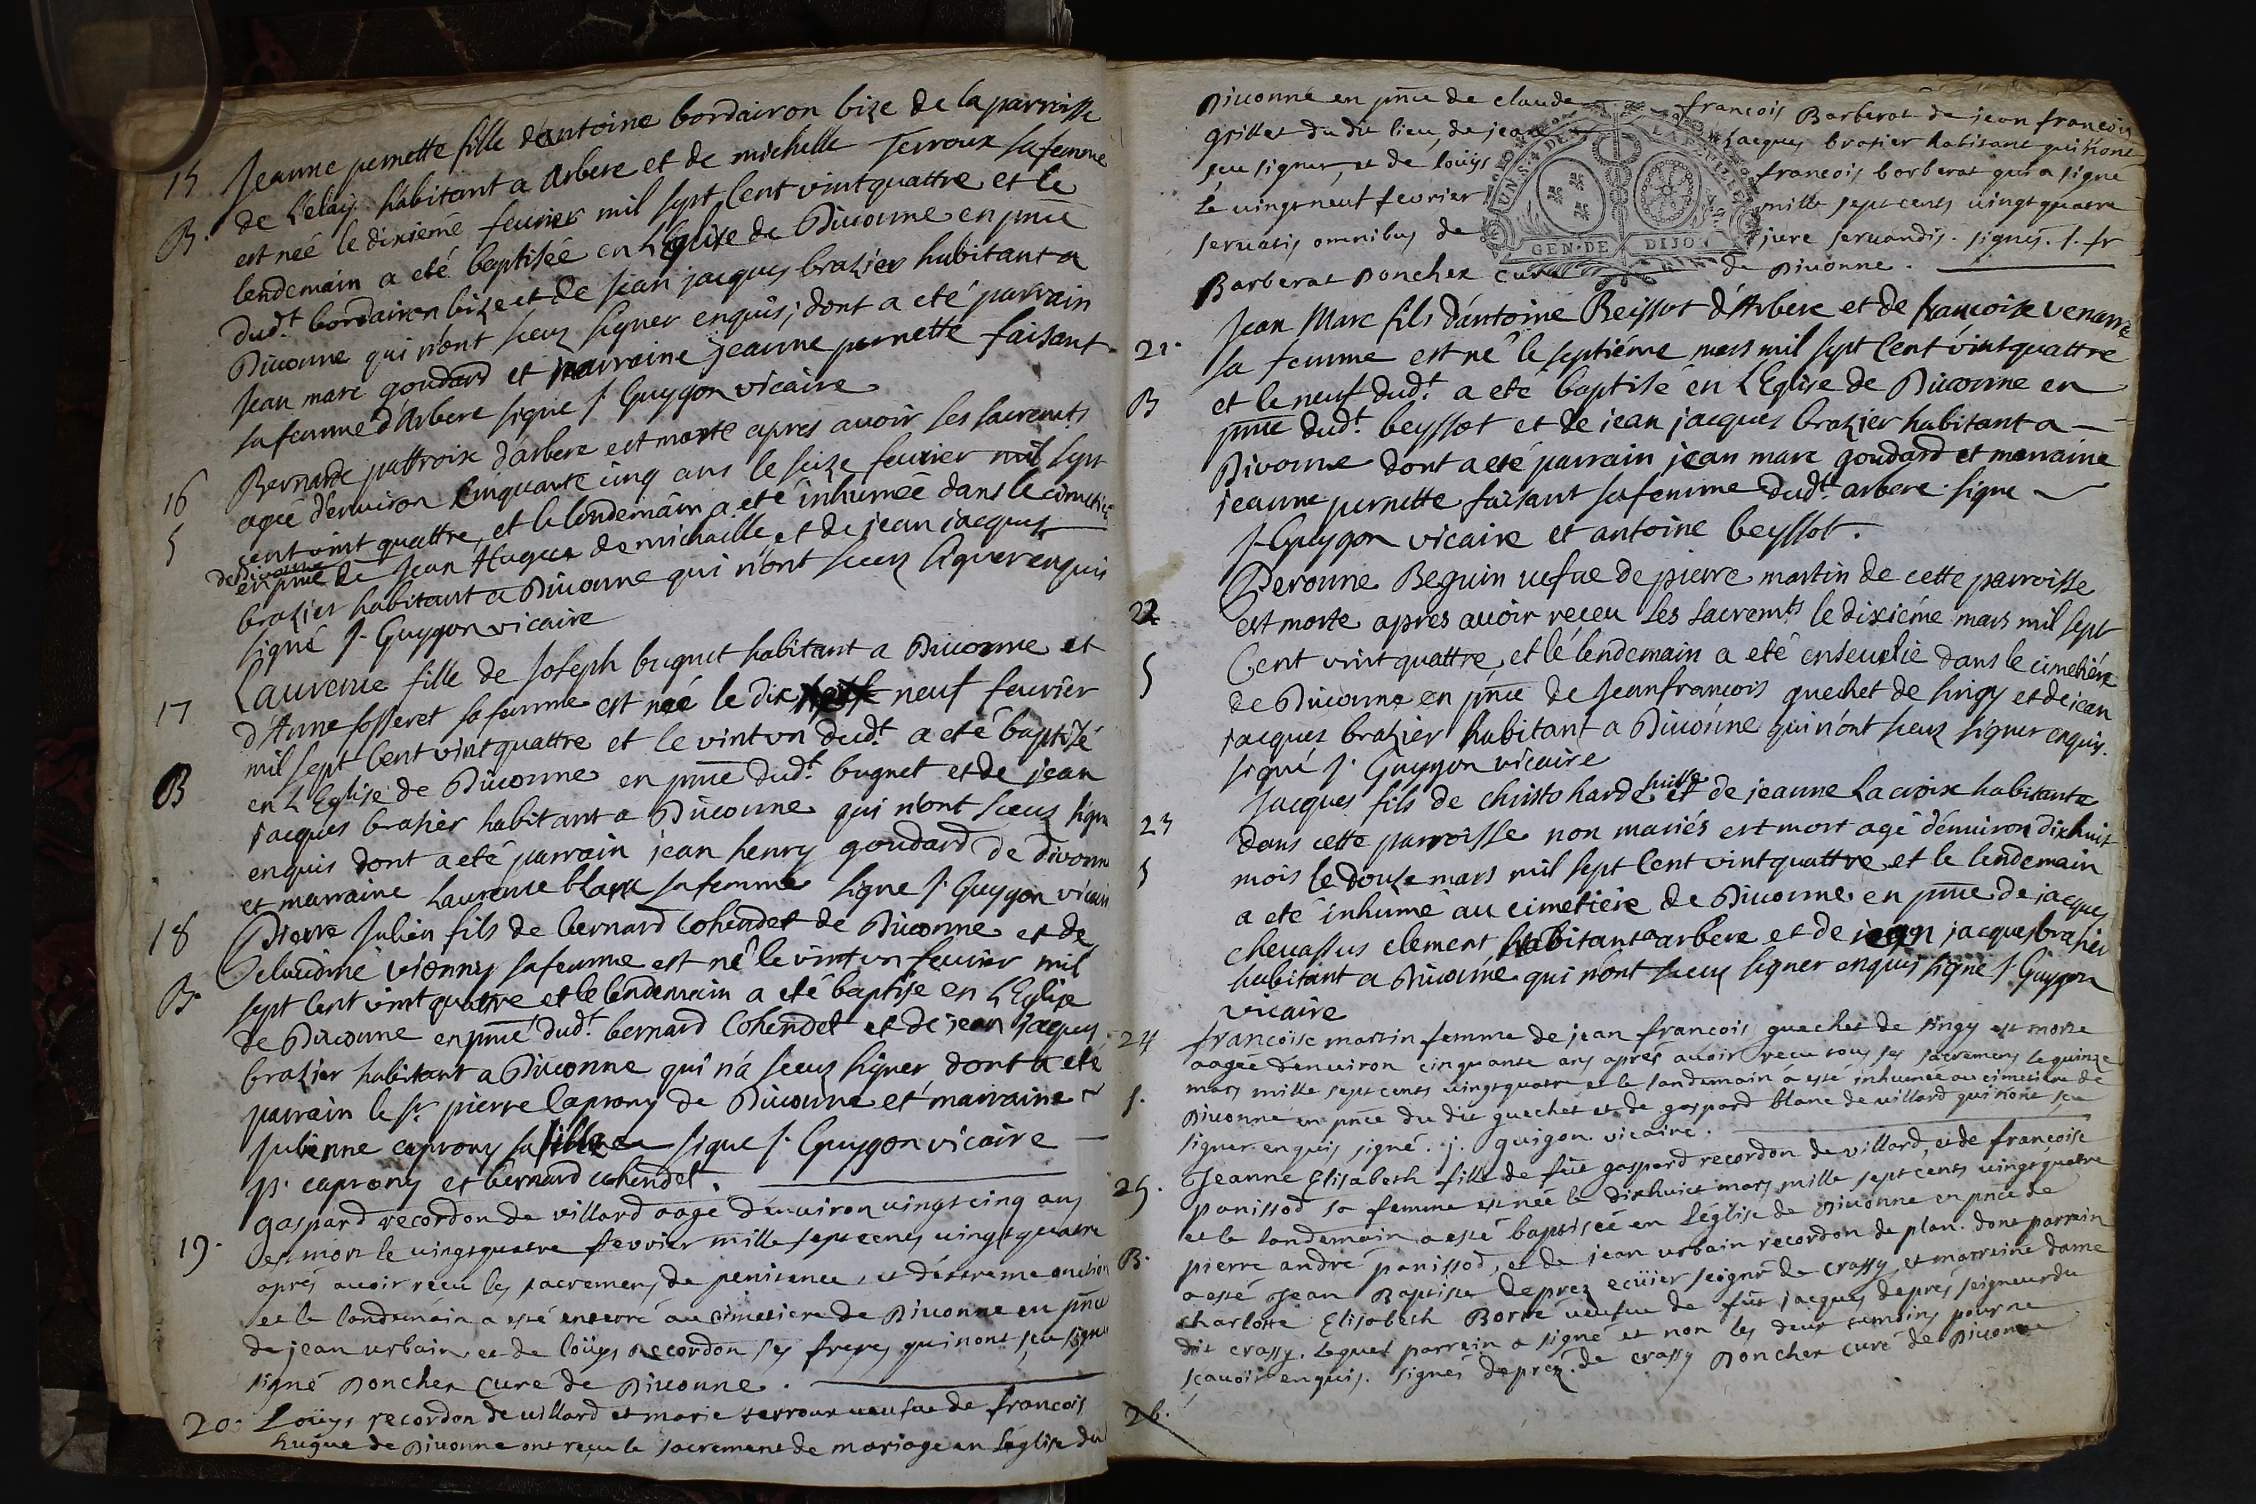 15 Jeanne pernette fille d'antoine bordairon bize de la parroisse
de Lelaij habitant a Arbere et de michelle Terroux sa femme
B. est née le dixiemé feurier mil sept Cent vint quattre et le
lendemain a eté baptisée en L'Eglise de Diuonne en pnce
dud.t bordairon bize et de jean jacques brazier habitant a
Diuonne qui n'ont sceuz signer enquis; dont a eté parrain
Jean marc goudard et marraine jeanne pernette faisant
sa femme d'Arbere signe J. Guygon vicaire
16 Bernarde pattroix d'arbere est morte apres avoir ses sacremts
agée d'enuiron Cinquante cinq ans le seize feurier mil sept
5 cent vint quattre, et le lendemain a eté inhumée dans le cimetiere
de Diuonne
en pnce de Jean Hugues de michaille, et de jean jacques
brazier habitant a Diuonne qui n'ont sceuz signer enquis
signé J. Guygon vicaire
17 Laurence fille de Joseph bugnet habitant a Diuonne et
d'Anne fosseret sa femme est née le dix neuf feurier
mil sept Cent vint quattre et le vint vn dud.t a eté baptisé
B en L'Eglise de Diuonne en pnce dud.t bugnet et de jean
jacques brasier habitant a Diuonne qui n'ont sceuz signe
enquis dont a eté parrain jean henry goudard de divonne
et marraine Laurence blanc sa femme signe J. Guygon vicaire
18 Pierre Julien fils de bernard Cohendet de Diuonne et de
Claudine vionnes sa femme est né le vint vn feurier mil
B. sept Cent vint quattre et le lendemain a eté baptise en L'Eglise
de Diuonne en pnce dud.t bernard Cohendet et de jean jacques
brazier habitant a Diuonne qui n'a sceuz signer dont a eté
parrain le sr. pierre Caprony de Diuonne et marraine
Julienne caprony sa fille signe J. Guygon vicaire
p. caprony et bernard cohendet.
19. gaspard recordon de villard aagé denuiron uingt cinq ans
est mort le uingt quatre fevrier mille sept cens uingt quatre
aprés auoir recu les sacremens de penitence, et d'extreme onction
et le landemain a esté enterré au cimetiere de Diuonne en pnce
de jean urbain et de loüys recordon ses freres qui n'ont sçeu signer
signé Donchex curé de Diuonne.
20. Loüys recordon de uillard et marie terroux ueufue de françois
hugue de Diuonne ont reçu le sacrement de mariage en L'église du
Diuonne en pnce de claude françois Barberat de jean françois
Grillet du dit lieu, de jean jacques brasier habitant qui n'ont
sceu signer, et de loüys françois barberat qui a signé
Le uingt neuf fevrier mille sept cents uingt quatre
servatis omnibus de jure servandis. signés. l. fr
Barberat Donchex Curé de Diuonne.
UN.S.4 DE LA FEUILLE
GEN·DE DIJON
21. Jean Marc fils d'antoine Beissot d'Arbere et de françoise venarre
sa femme est né le septiéme mars mil sept Cent vint quattre
B et le neuf dud.t a eté baptisé en L'Eglise de Diuonne en
pnce dud.t beyssot et de jean jacques brazier habitant a
Divonne dont a eté parrain jean marc goudard et marraine
jeanne pernette faisant sa femme dud.t arbere signe
J. Guygon vicaire et antoine beyssot.
22 Peronne Beguin uefue de pierre martin de cette parroisse
est morte apres auoir reçeu Les sacremts le dixiéme mars mil sept
5 Cent vint quattre, et le lendemain a eté enseuelie dans le cimetiére
de Diuonne en pnce de Jean francois quechet de singy et de jean
jacques brazier habitant a Diuonne qui n'ont sceuz signer enquis.
signé J. Guygon vicaire
23 Jacques fils de christo harde suisse et de jeanne Lacroix habitante
dans cette parroisse non mariés est mort agé d'enuiron dixhuit
5 mois le douze mars mil sept Cent vint quattre et le lendemain
a eté inhumé au cimetiére de Diuonne en pnce de jacques
cheuassus clement habitant a arbere et de jean jacques brasier
habitant a Diuonne qui n'ont sceuz signer enquis signé J. Guygon
vicaire
24 françoise martin femme de jean francois guechet de singy est morte
aagée denuiron cinquante ans aprés auoir reçu tous ses sacremens le quinze
mars mille sept cents uingt quatre et le landemain a esté inhumée au cimetiere de
5. Diuonne en pnce du dit guechet et de gaspard blanc de uillard qui n'ont sceu
signer enquis signé. j. guigon vicaire.
25. Jeanne Elisabeth fille de fût gaspard recordon de villard, et de françoise
panissod sa femme est née le dixhuict mars mille sept cents uingt quatre
et le landemain a esté baptisée en L'église de Diuonne en pnce de
B. pierre andré panissod, et de jean urbain recordon de plan. dont parrain
a esté Jean Baptiste Deprez ecüier seigné de Crassy, et marreine dame
charlotte Elisabeth Borré ueufue de fût jacques deprés seigneur du
dit crassy. lequel parrein a signé et non les deux temoins pour ne
sçauoir enquis. signés deprez. de crassy Donchex curé de Diuonne
26.